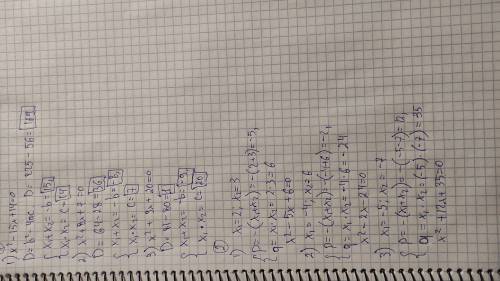 1) x²-15x+14=0
D=b²-4ac D= 225-56=169
{ x₁+x₂=-b=15
x₁·x₂=c=14
2) x²+8x+7=0
D=64-28=36
{ x₁+x₂=-b=-8
x₁·x₂=c=7
3) x²+9x+20=0
D=81-80=1
{ x₁+x₂=-b=-9
x₁·x₂=c=20
②
1) x₁=2, x₂=3
{ p=-(x₁+x₂)=-(2+3)=-5,
q=x₁·x₂=2·3=6
x²-5x+6=0
2) x₁=-4, x₂=6
{ p=-(x₁+x₂)=-(-4+6)=-2,
q=x₁·x₂=-4·6=-24
x²-2x-24=0
3) x₁=-5, x₂=-7
{ p=-(x₁+x₂)=-(-5-7)=12,
q=x₁·x₂=(-5)·(-7)=35
x²+12x+35=0